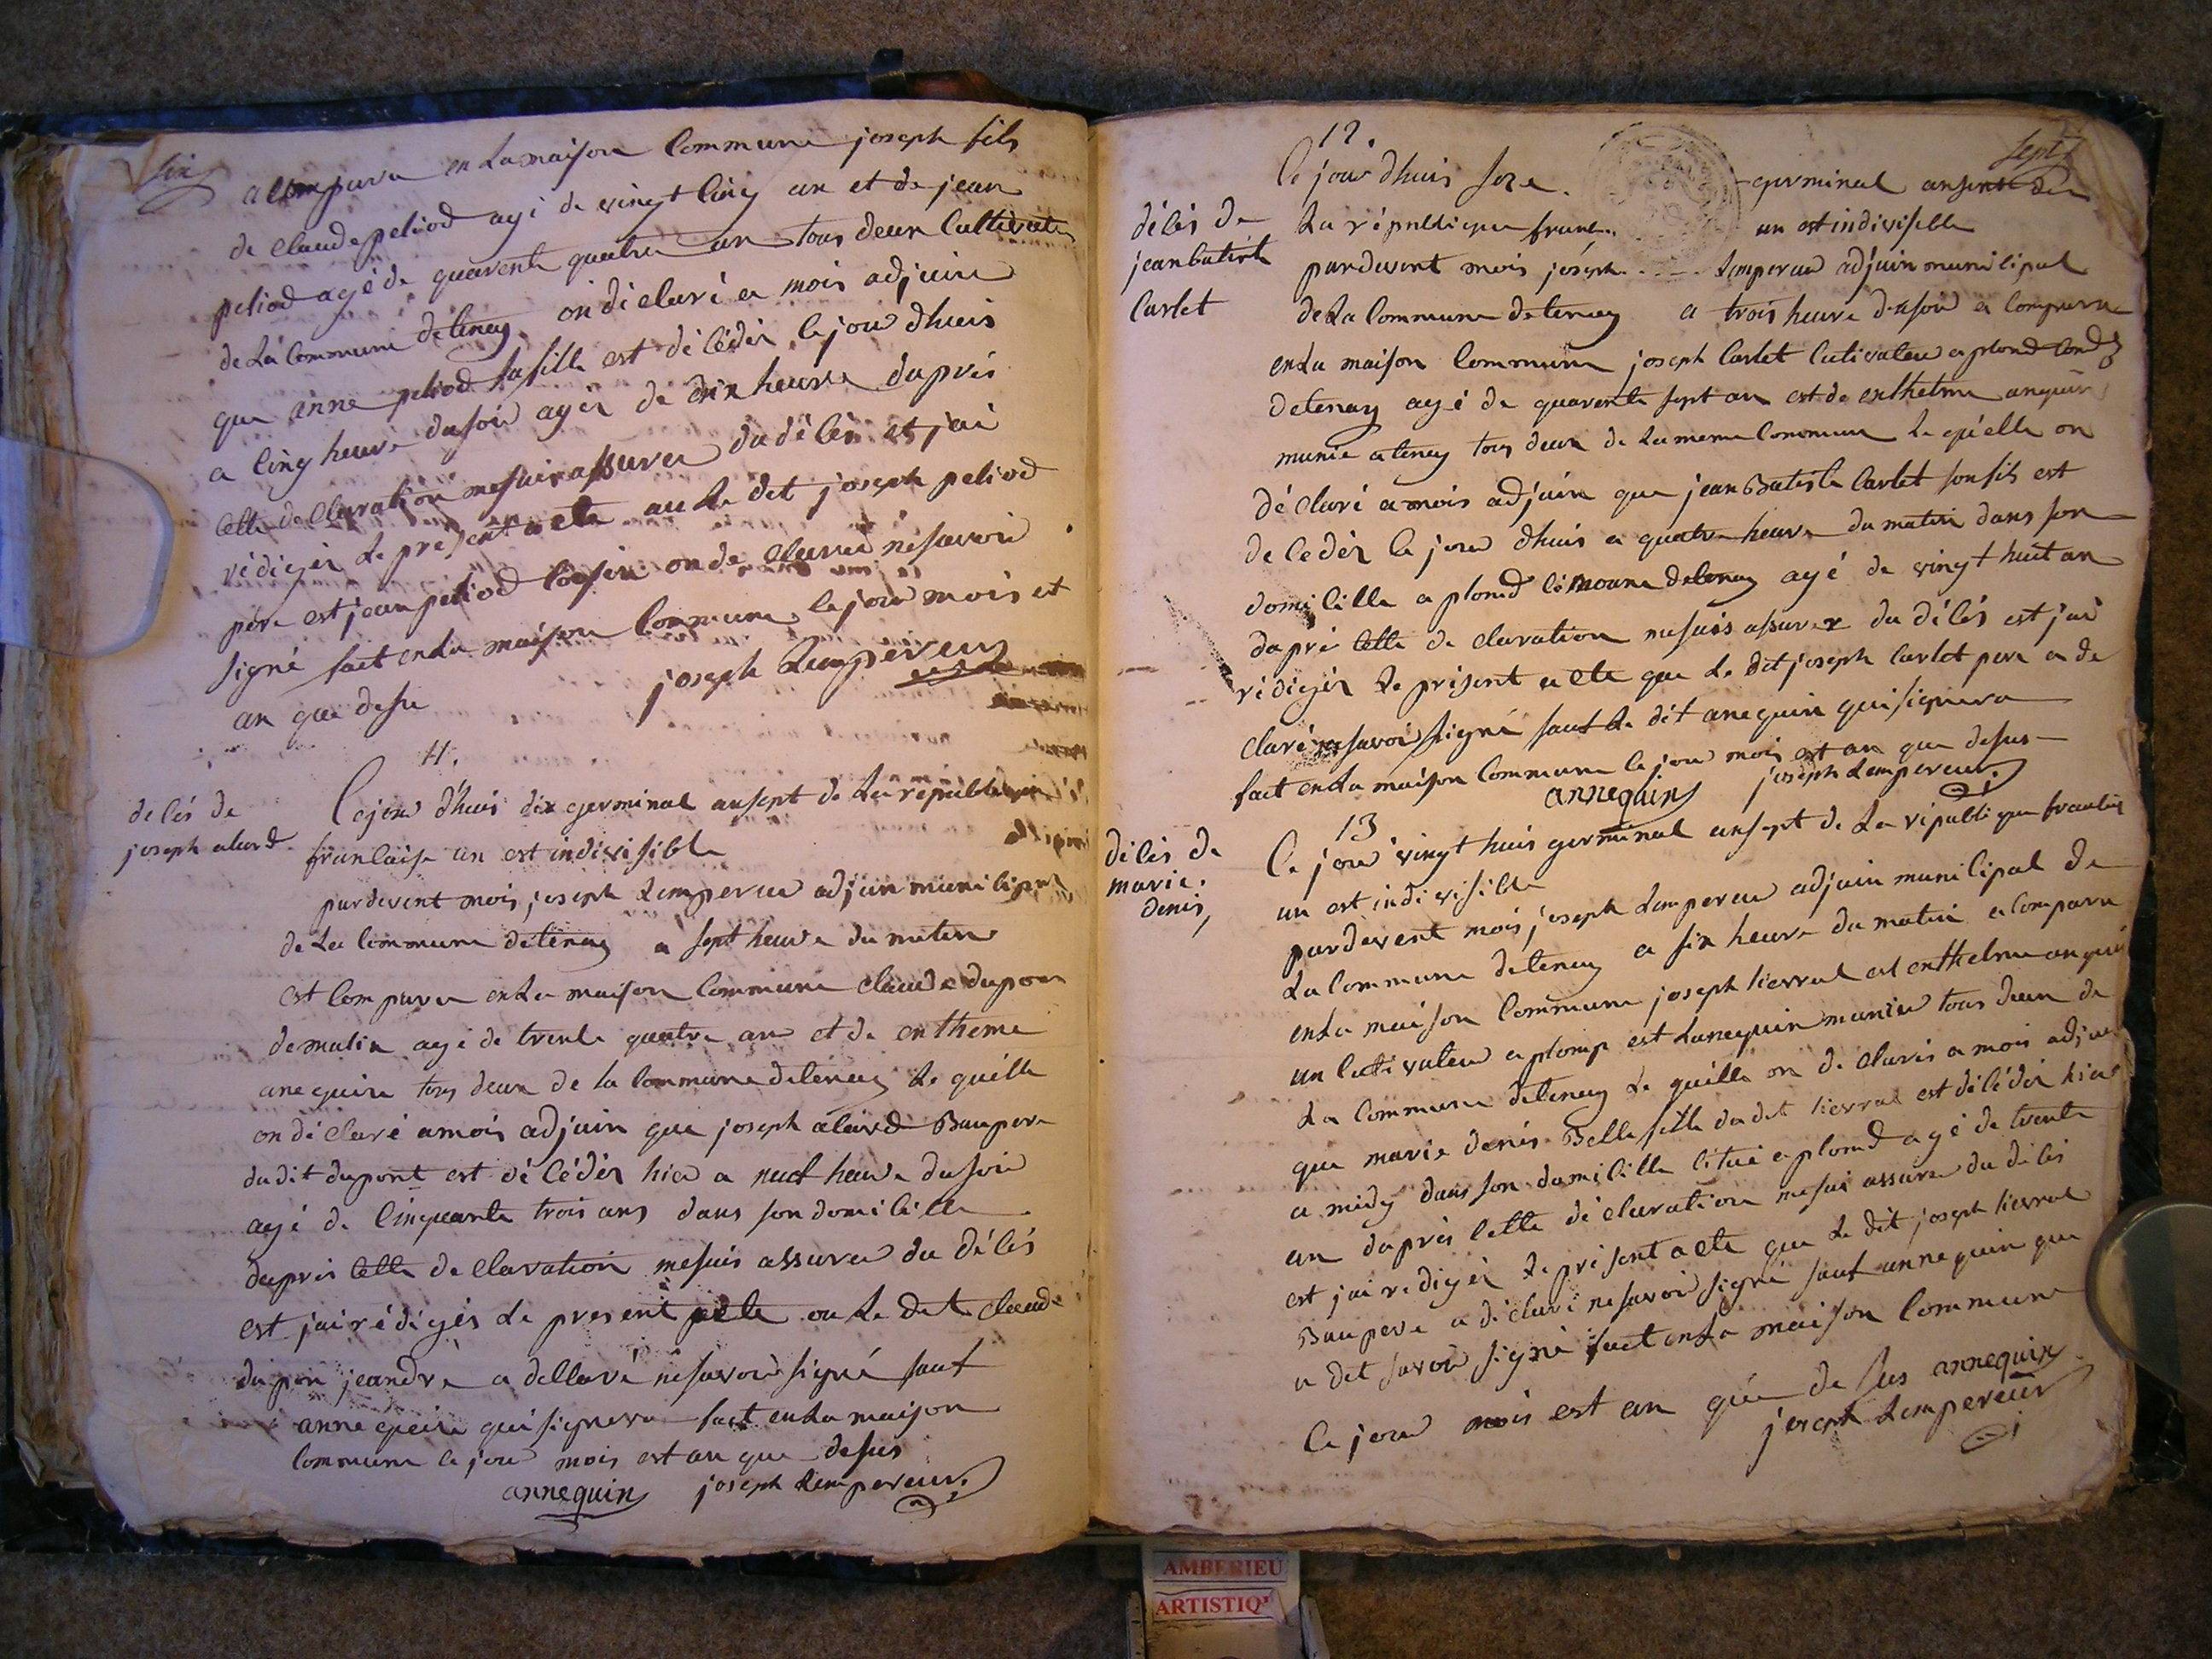 six
a compara en la maison commune joseph fils
de claude peliod agé de vingt cinq an et de jean
peliod agé de quarente quatre an tous deux cultivateu
de la commune detenay on déclaré a mois adjuin
que anne peliod sa fille est décédér ce jour dhuis
a cinq heure du soir agér de dix heure daprés
cette declaration me suir assurer du décér et jai
rédigér le présent acte au le dit joseph peliod
pére est jean peliod cousin on de clarer né savoir
signé fait en la maison commune ce jour mois et
an que desu
joseph Lempereur
11.
décés de
joseph alard
Ce jour d'huis dix germinal an sept de la république
francaise un est indivisible
pardevent mois joseph Lempereur adjuin municipal
de la commune detenay a sept heure du matin
est comparu en la maison commune claude dupon
demulin agé de trente quatre an et de entheme
anequin tous deux de la commune detenay le quélle
on déclaré a mois adjuin que joseph alard Baupere
dudit dupont est décédér hier a neuf heure du soir
agé de cinquante trois ans dans son domicille
daprés cette declaration me suis assurer du décés
est jai rédigés le present acte ou le dit claude
dupon jeandré a dellaré né savoir signé sauf
annequin qui signera fait en la maison
commune ce jour mois est an que desus
annequin joseph Lempereur
sept
12.
Ce jour dhuis seze germinal an sept de
la république franc un est indivisible
décés de
jean batiste
Carlet
pardevent mois joseph Lempereur adjuin municipal
de la commune detenay a trois heure du soir a comparu
en la maison commune joseph Carlet cutivateur a plomd
detenay agé de quarente sept an est de enthelme anquin
munié atenay tous deux de la meme commun le quélle on
déclaré a mois adjuin que jean Batiste Carlet son fils est
décedér ce jour dhuis a quatre heure du matin dans son
domicille a plomd detenay agé de vingt huit an
dapré cette declaration me suis assurer du décés est jai
rédigér le présent acte que le dit joseph Carlet pere a de
claré né savoir signé sauf le dit anequin qui signera
fait en la maison commune ce jour mois est an que desus
annequin joseph Lempereur
13
décés de
marie
denis
Ce jour vingt huis germinal an sept de la république francais
un est indivisible
pardevent mois joseph Lempereur adjuin municipal de
la commune detenay a six heure du matin a comparu
en la maison commune joseph tierral est enthelme anquin
un cutivateur a plomp est lanequin munier tous deux de
la commune detenay le quélle on de claris a mois adjuin
que marie denis Belle fille dudit tierral est décédér hier
a midy dans son domicille citué a plomd agé de trente
an daprés cette déclaration me suis assure du décés
est jai redigér le présent acte que le dit joseph tierral
Baupere a déclaré ne savoir signé sauf annequin qui
a dit savoir signé fait en la maison commune
ce jour mois est an qué de sus annequin
joseph Lempereur
AMBERIEU
ARTISTIQ'